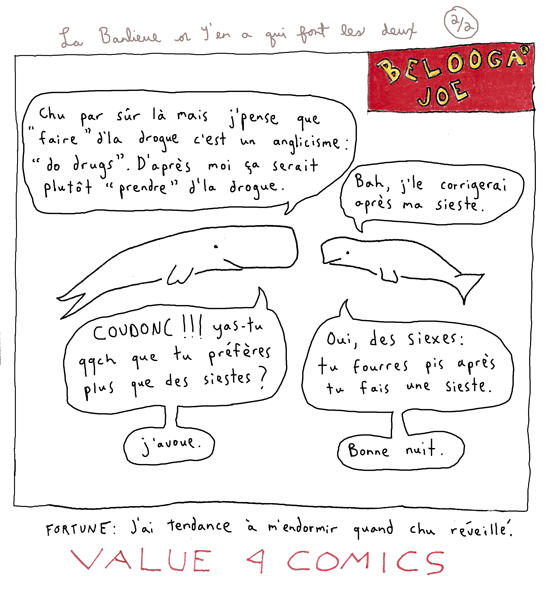 La Banlieue or Y'en a qui font les deux
2/2
BELOOGA®
JOE
Chu par sûr là mais j'pense que
"faire" d'la drogue c'est un anglicisme:
"do drugs". D'après moi ça serait
plutôt "prendre" d'la drogue.
Bah, j'le corrigerai
après ma sieste.
COUDONC!!! yas-tu
qqch que tu préfères
plus que des siestes?
j'avoue.
Oui, des siexes:
tu fourres pis après
tu fais une sieste.
Bonne nuit.
FORTUNE: J'ai tendance à m'endormir quand chu réveillé.
VALUE 4 COMICS